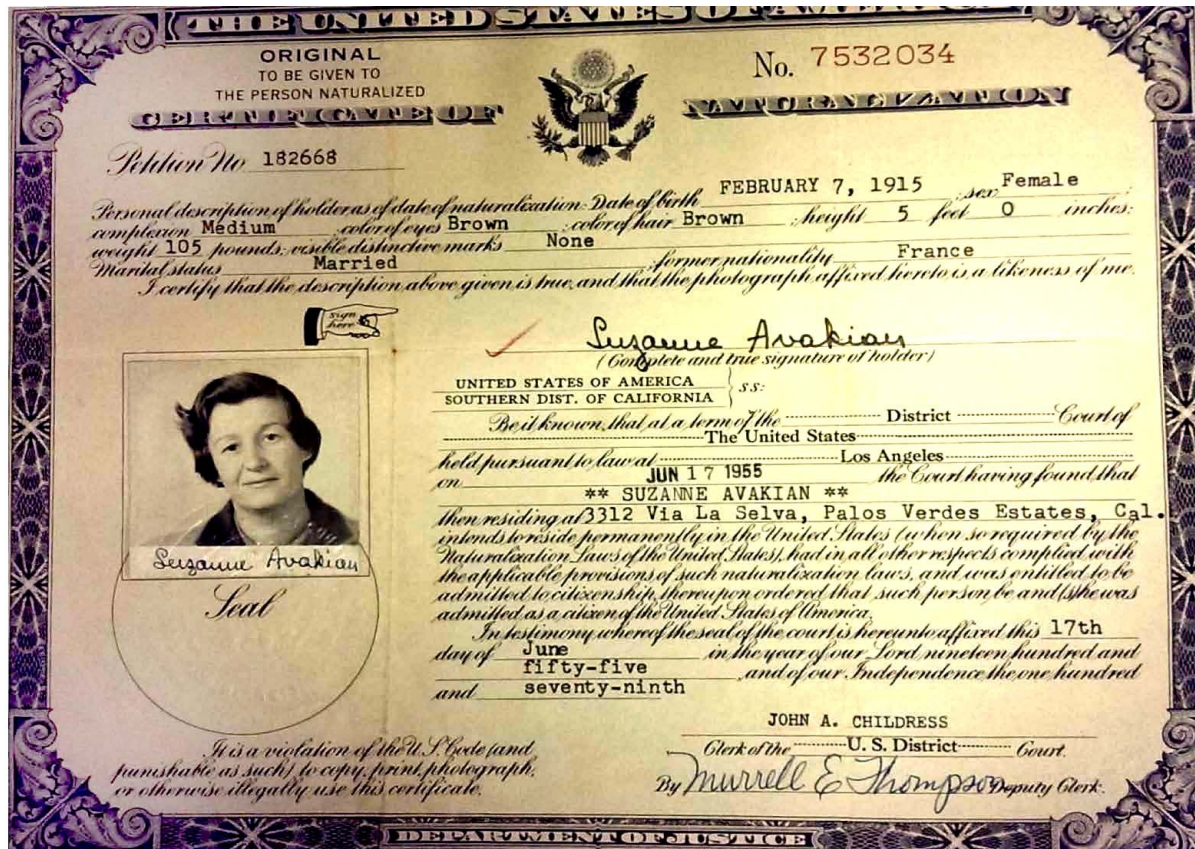 THE UNITED STATES OF AMERICA
ORIGINAL
TO BE GIVEN TO
THE PERSON NATURALIZED
No. 7532034
CERTIFICATE OF NATURALIZATION
Petition No 182668
Personal description of holder as of date of naturalization: Date of birth FEBRUARY 7, 1915 ; sex Female ;
complexion Medium ; color of eyes Brown ; color of hair Brown ; height 5 feet 0 inches;
weight 105 pounds; visible distinctive marks None
Marital status Married ; former nationality France
I certify that the description above given is true, and that the photograph affixed hereto is a likeness of me.
sign here
Suzanne Avakian
(Complete and true signature of holder)
UNITED STATES OF AMERICA
SOUTHERN DIST. OF CALIFORNIA
ss:
Be it known, that at a term of the District Court of
The United States
held pursuant to law at Los Angeles
on JUN 17 1955 the Court having found that
** SUZANNE AVAKIAN **
then residing at 3312 Via La Selva, Palos Verdes Estates, Cal.
intends to reside permanently in the United States (when so required by the
Naturalization Laws of the United States), had in all other respects complied with
the applicable provisions of such naturalization laws, and was entitled to be
admitted to citizenship, thereupon ordered that such person be and (s)he was
admitted as a citizen of the United States of America.
In testimony whereof the seal of the court is hereunto affixed this 17th
day of June in the year of our Lord nineteen hundred and
fifty-five , and of our Independence the one hundred
and seventy-ninth
Suzanne Avakian
Seal
JOHN A. CHILDRESS
Clerk of the U. S. District Court.
By Murrell E Thompson Deputy Clerk.
It is a violation of the U.S. Code (and
punishable as such) to copy, print, photograph,
or otherwise illegally use this certificate.
DEPARTMENT OF JUSTICE